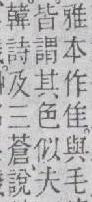 雅本作隹與毛
皆謂其色似夫
韓詩及三蒼說